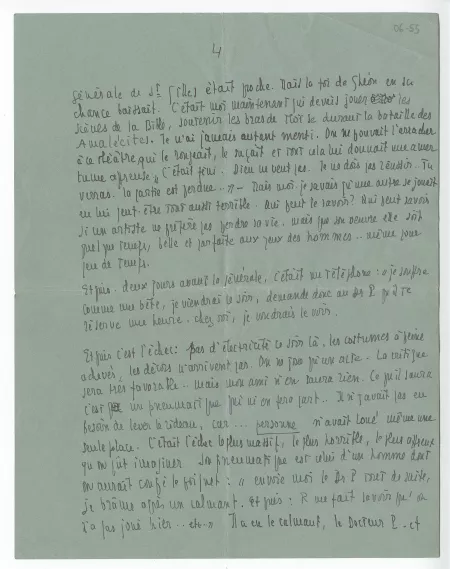 06-55
4
générale de St [Elle] était proche. Mais la foi de Ghéon en sa
chance baissait. C'était moi maintenant qui devais jouer les
scènes de la Bible, soutenir les bras de Moïse durant la bataille des
Amalécites. Je n'ai jamais autant menti. On ne pouvait l'arracher
à ce théâtre qui le rongeait, le suçait et tout cela lui donnait une amer
tume affreuse. C'était fini. Dieu ne veut pas. Je ne dois pas réussir.. Tu
verras. la partie est perdue.. » - Mais moi je savais qu'une autre se jouait
en lui peut-être tout aussi terrible. Qui peut le savoir? Qui peut savoir
si un artiste ne préfère pas perdre sa vie, mais que son oeuvre elle soit
quelque temps, belle et parfaite aux yeux des hommes.. même pour
peu de temps.
Et puis. deux jours avant la générale, c'était un téléphone: « je souffre
comme une bête, je viendrai ce soir, demande donc au Dr P qu'il te
réserve une heure. chez toi, je voudrais le voir.
Et puis c'est l'échec: pas d'électricité ce soir là, les costumes à peine
achevés, les décors n'arrivent pas. On ne joue qu'un acte. La critique
sera très favorable.. mais mon ami n'en saura rien. Ce qu'il saura
c'est un pneumatique qui m'en fera part.. Il n'y avait pas eu
besoin de lever le rideau, car... personne n'avait loué même une
seule place. C'était l'échec le plus massif, le plus horrible, le plus affreux
qu'on pût imaginer. Son pneumatique est celui d'un homme dont
on aurait coupé le poignet: « envoie moi le Dr P tout de suite,
je brâme après un calmant. Et puis: R me fait savoir qu'on
n'a pas joué hier.. etc.. » Il a eu le calmant, le Docteur P. et